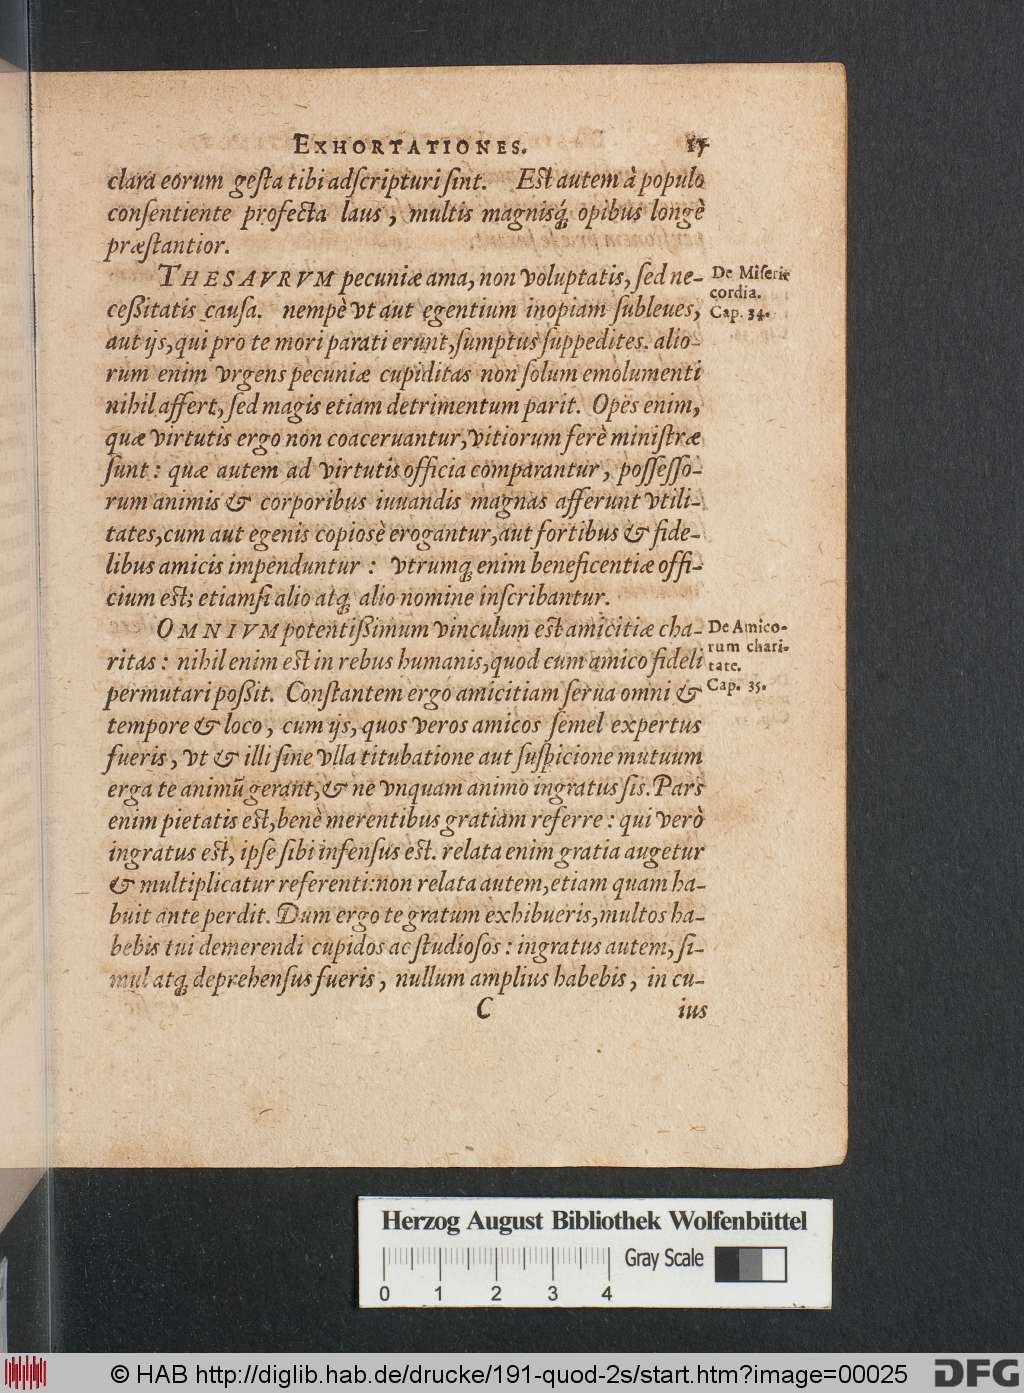 EXHORTATIONES. 17
clara eorum geſta tibi adſcripturi ſint. Eſt autem à populo
conſentiente profecta laus, multis magnisq́; opibus longè
præſtantior.
THESAVRVM pecuniæ ama, non voluptatis, ſed ne-
ceßitatis cauſa. nempè vt aut egentium inopiam ſubleues,
aut ijs, qui pro te mori parati erunt, ſumptus ſuppedites. alio-
rum enim vrgens pecuniæ cupiditas non ſolum emolumenti
nihil affert, ſed magis etiam detrimentum parit. Opes enim,
quæ virtutis ergo non coaceruantur, vitiorum ferè miniſtræ
ſunt: quæ autem ad virtutis officia comparantur, poſſeſſo-
rum animis & corporibus iuuandis magnas afferunt vtili-
tates, cum aut egenis copiosè erogantur, aut fortibus & fide-
libus amicis impenduntur: vtrumq; enim beneficentiæ offi-
cium eſt; etiamſi alio atq; alio nomine inſcribantur.
De Miſeri
cordia.
Cap. 34.
OMNIVM potentißimum vinculum eſt amicitiæ cha-
ritas: nihil enim eſt in rebus humanis, quod cum amico fideli
permutari poßit. Conſtantem ergo amicitiam ſerua omni &
tempore & loco, cum ijs, quos veros amicos ſemel expertus
fueris, vt & illi ſine vlla titubatione aut ſuſpicione mutuum
erga te animũ gerant, & ne vnquam animo ingratus ſis. Pars
enim pietatis eſt, benè merentibus gratiam referre: qui verò
ingratus eſt, ipſe ſibi infenſus eſt. relata enim gratia augetur
& multiplicatur referenti: non relata autem, etiam quam ha-
buit ante perdit. Dum ergo te gratum exhibueris, multos ha-
bebis tui demerendi cupidos ac ſtudioſos: ingratus autem, ſi-
mul atq; deprehenſus fueris, nullum amplius habebis, in cu-
De Amico-
rum chari-
tate.
Cap. 35.
C ius
Herzog August Bibliothek Wolfenbüttel
Gray Scale
0 1 2 3 4
© HAB http://diglib.hab.de/drucke/191-quod-2s/start.htm?image=00025
DFG